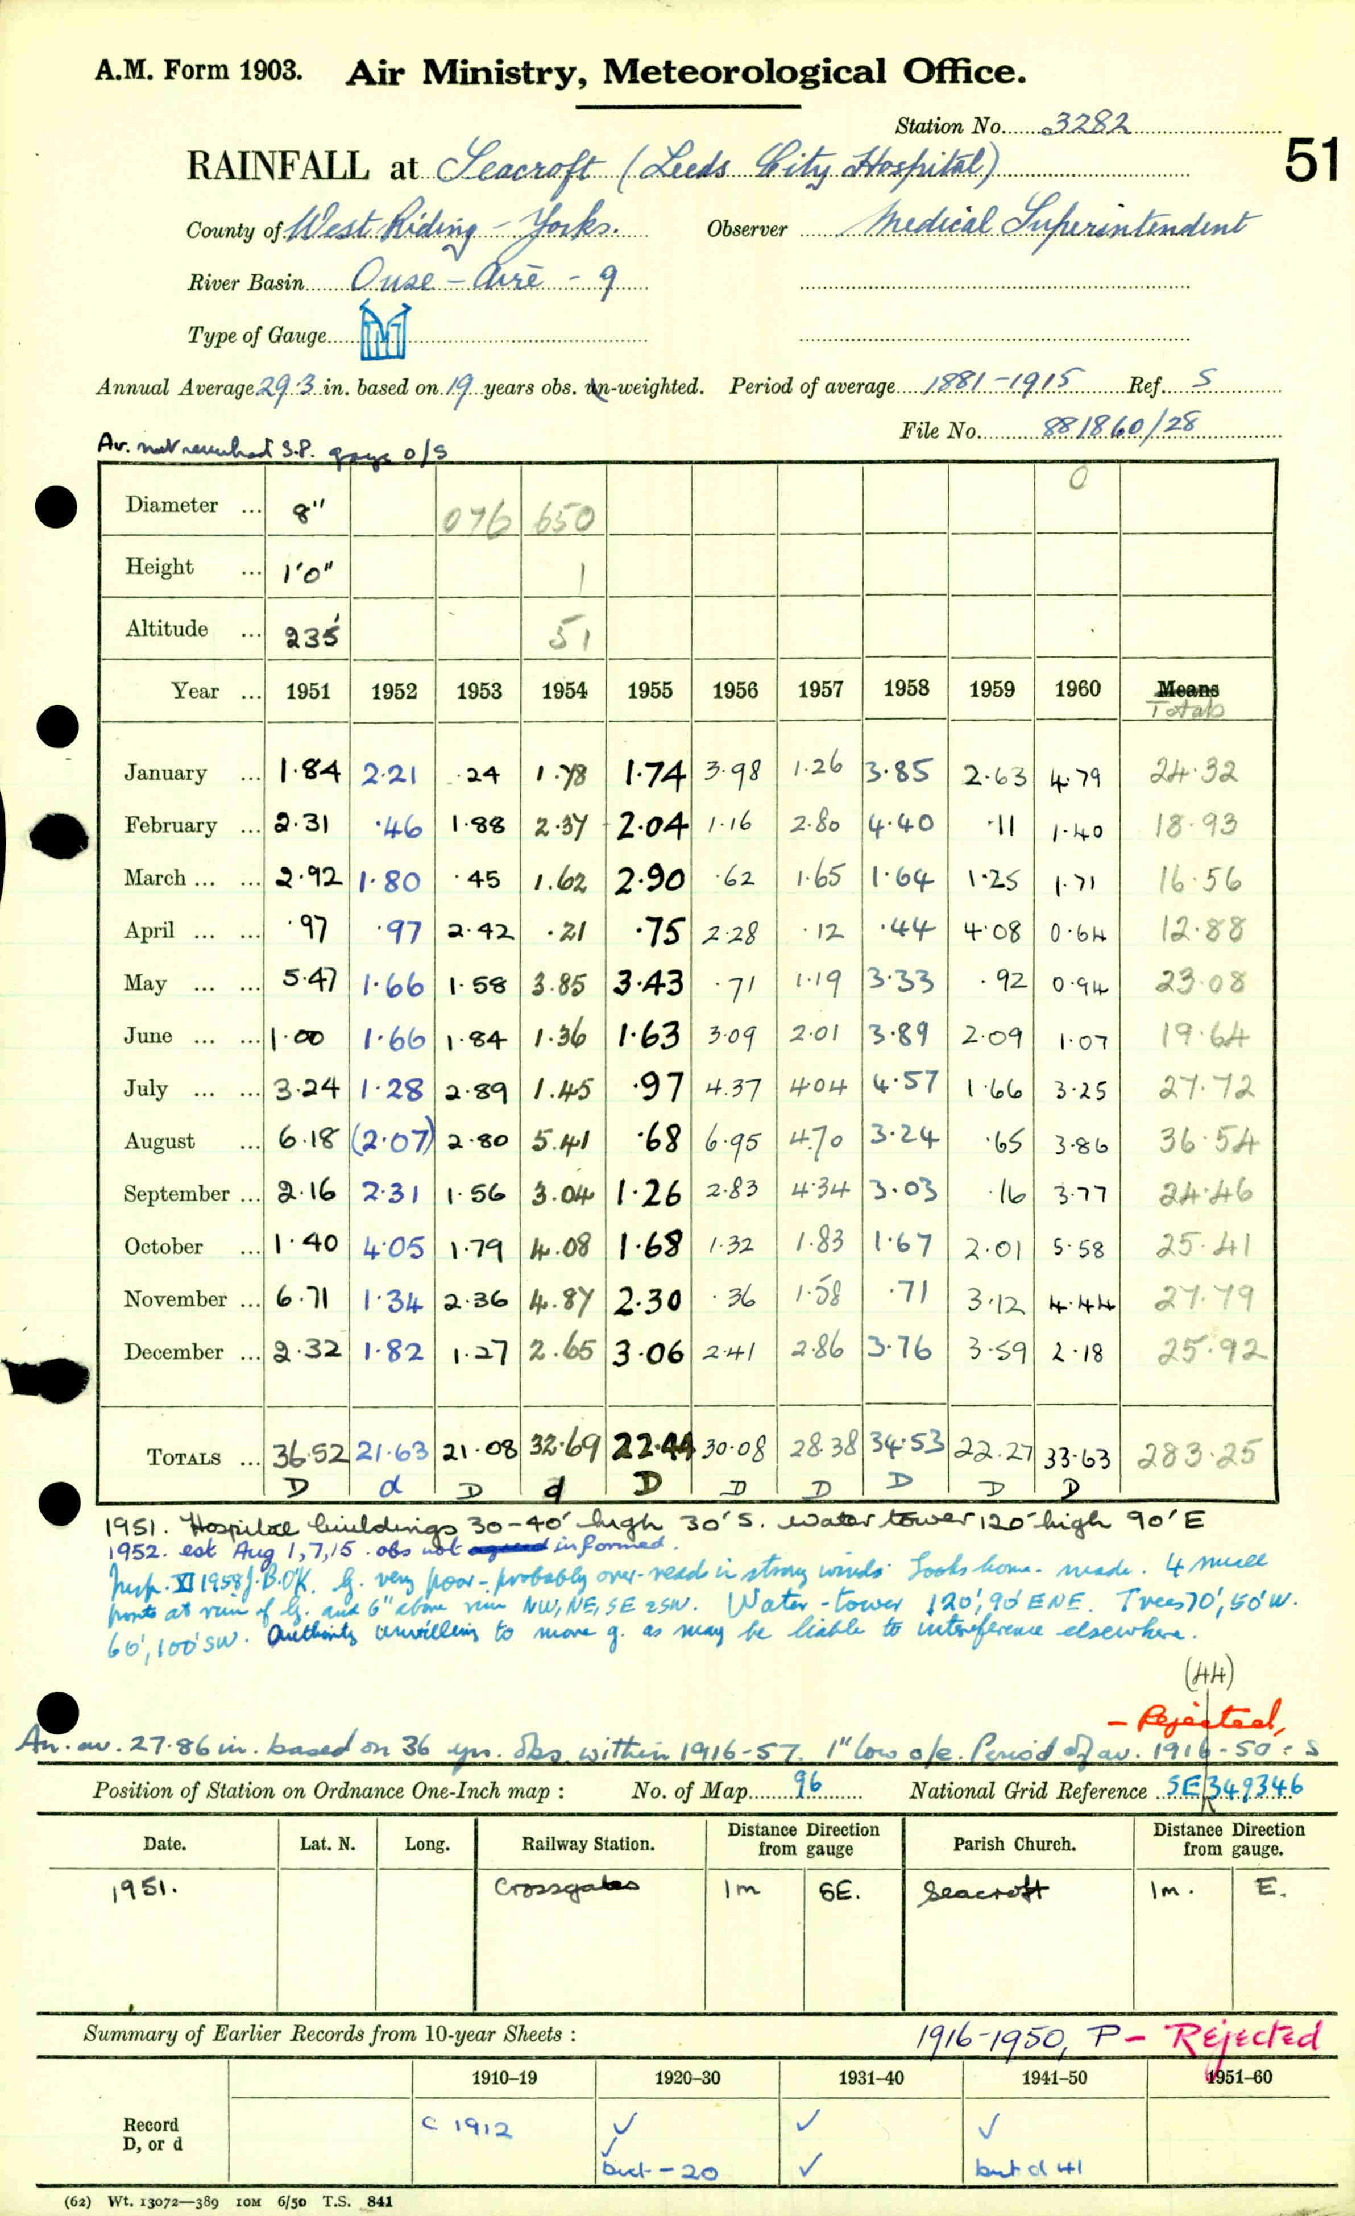 A.M. Form 1903. Air Ministry, Meteorological Office.
Station No. 3282
RAINFALL at Seacroft (Leeds City Hospital) 51
County of West Riding - Yorks. Observer Medical Superintendent
River Basin Ouse - Aire - 9
Type of Gauge
Annual Average 29.3 in. based on 19 years obs. un-weighted. Period of average 1881-1915 Ref. S
File No. 881860/28
Av. not S.P. gauge o/s
Diameter ... 8" 076 650 0
Height ... 1'0" 1
Altitude ... 235' 51
Year ... 1951 1952 1953 1954 1955 1956 1957 1958 1959 1960 Means
Totals
January ... 1.84 2.21 .24 1.78 1.74 3.98 1.26 3.85 2.63 4.79 24.32
February ... 2.31 .46 1.88 2.37 2.04 1.16 2.80 4.40 .11 1.40 18.93
March ... ... 2.92 1.80 .45 1.62 2.90 .62 1.65 1.64 1.25 1.71 16.56
April ... ... .97 .97 2.42 .21 .75 2.28 .12 .44 4.08 0.64 12.88
May ... ... 5.47 1.66 1.58 3.85 3.43 .71 1.19 3.33 .92 0.94 23.08
June ... ... 1.00 1.66 1.84 1.36 1.63 3.09 2.01 3.89 2.09 1.07 19.64
July ... ... 3.24 1.28 2.89 1.45 .97 4.37 4.04 4.57 1.66 3.25 27.72
August ... 6.18 (2.07) 2.80 5.41 .68 6.95 4.70 3.24 .65 3.86 36.54
September ... 2.16 2.31 1.56 3.04 1.26 2.83 4.34 3.03 .16 3.77 24.46
October ... 1.40 4.05 1.79 4.08 1.68 1.32 1.83 1.67 2.01 5.58 25.41
November ... 6.71 1.34 2.36 4.87 2.30 .36 1.58 .71 3.12 4.44 27.79
December ... 2.32 1.82 1.27 2.65 3.06 2.41 2.86 3.76 3.59 2.18 25.92
TOTALS ... 36.52 21.63 21.08 32.69 22.44 30.08 28.38 34.53 22.27 33.63 283.25
D d D d D D D D D D
1951. Hospital buildings 30-40' high 30'S. Water tower 120' high 90'E
1952. est Aug 1,7,15. obs not agreed informed.
Insp. XI 1958 J.B.O'K. G. very poor - probably over-reads in strong winds. Looks home-made. 4 small
points at rim of G. and 6" above rim NW, NE, SE & SW. Water-tower 120', 90' ENE. Trees 70', 50'W.
60', 100'SW. Authority unwilling to move g. as may be liable to interference elsewhere.
(44)
- Rejected,
An. av. 27.86 in. based on 36 yrs. obs. within 1916-57. 1" low o/e. Period of av. 1916-50 : S
Position of Station on Ordnance One-Inch map : No. of Map 96 National Grid Reference SE 349346
Date. Lat. N. Long. Railway Station. Distance from Direction gauge Parish Church. Distance from Direction gauge.
1951. Crossgates 1m SE. Seacroft 1m. E.
Summary of Earlier Records from 10-year Sheets : 1916-1950, P - Rejected
1910-19 1920-30 1931-40 1941-50 1951-60
Record c 1912 ✓ ✓ ✓
D, or d ✓ but - 20 ✓ but d 41
(62) Wt. 13072—389 10M 6/50 T.S. 841